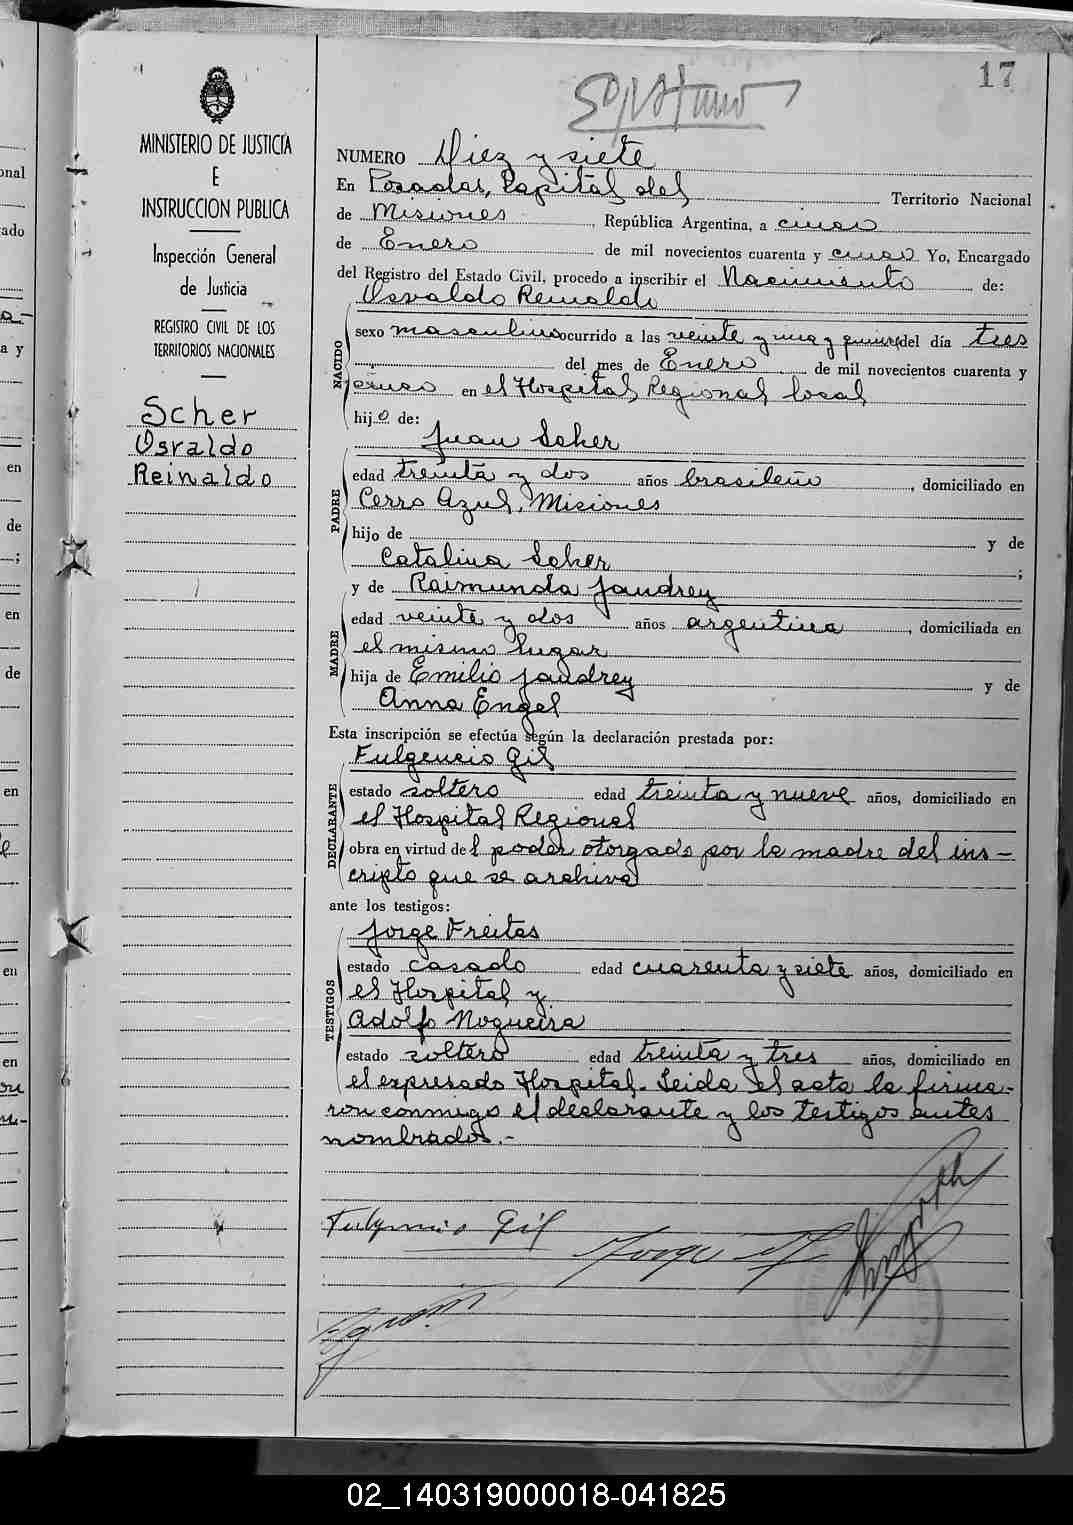 17
NUMERO Diez y siete
En Posadas, Capital del Territorio Nacional
de Misiones, República Argentina, a cinco
de Enero de mil novecientos cuarenta y cinco Yo, Encargado
del Registro del Estado Civil, procedo a inscribir el Nacimiento de:
Osvaldo Reinaldo
NACIDO
sexo masculino ocurrido a las veinte y una y quince del día tres
del mes de Enero de mil novecientos cuarenta y
cinco en el Hospital Regional local
hijo de:
Juan Scher
PADRE
edad treinta y dos años brasileño, domiciliado en
Cerro Azul, Misiones
hijo de y de
Catalina Scher;
y de Raimunda Jaudrey
MADRE
edad veinte y dos años argentina, domiciliada en
el mismo lugar
hija de Emilio Jaudrey y de
Anna Engel
Esta inscripción se efectúa según la declaración prestada por:
Fulgencio Gil
DECLARANTE
estado soltero edad treinta y nueve años, domiciliado en
el Hospital Regional
obra en virtud del poder otorgado por la madre del ins-
cripto que se archiva
ante los testigos:
Jorge Freitas
TESTIGOS
estado casado edad cuarenta y siete años, domiciliado en
el Hospital y
Adolfo Nogueira
estado soltero edad treinta y tres años, domiciliado en
el expresado Hospital. Leida el acta la firma-
ron conmigo el declarante y los testigos antes
nombrados.-
Fulgencio Gil
Jorge
MINISTERIO DE JUSTICIA
E
INSTRUCCION PUBLICA
Inspección General
de Justicia
REGISTRO CIVIL DE LOS
TERRITORIOS NACIONALES
Scher
Osvaldo
Reinaldo
onal
ado
a-
a y
en
de
;
en
de
en
en
en
02_140319000018-041825